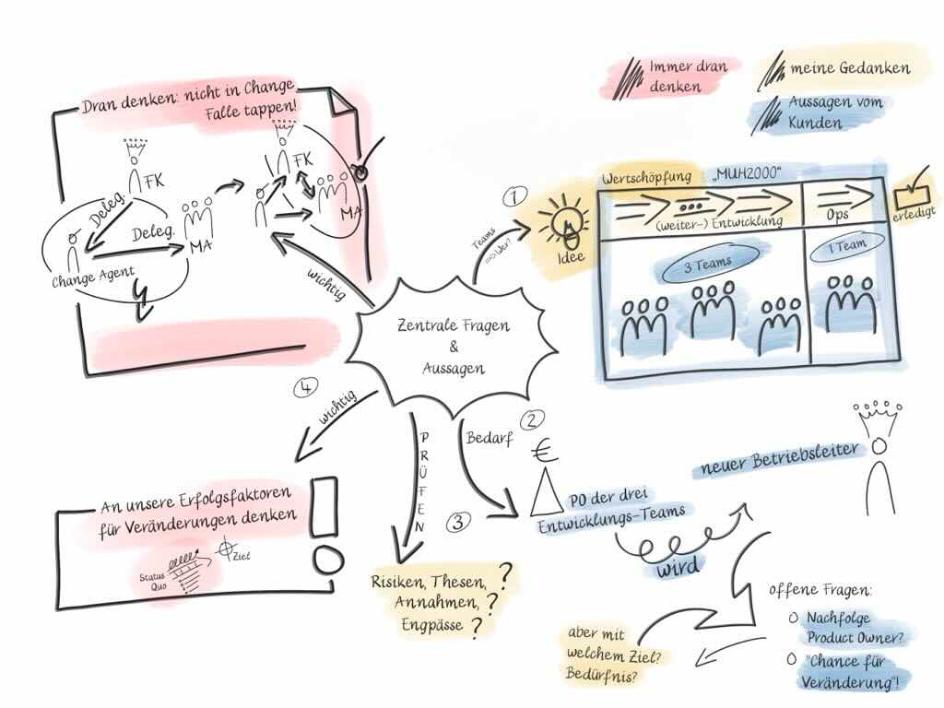 Immer dran
denken
meine Gedanken
Aussagen vom
Kunden
Dran denken: nicht in Change
Falle tappen!
FK
Deleg.
Deleg.
MA
Change Agent
FK
MA
wichtig
Zentrale Fragen
&
Aussagen
1
Teams
Wer?
Idee
Wertschöpfung „MUH2000“
(weiter-) Entwicklung
Ops
erledigt
3 Teams
1 Team
2
Bedarf
€
PO der drei
Entwicklungs-Teams
wird
neuer Betriebsleiter
offene Fragen:
Nachfolge
Product Owner?
"Chance für
Veränderung"!
aber mit
welchem Ziel?
Bedürfnis?
3
PRÜFEN
Risiken, Thesen, ?
Annahmen, ?
Engpässe ?
4
wichtig
An unsere Erfolgsfaktoren
für Veränderungen denken
Status
Quo
Ziel